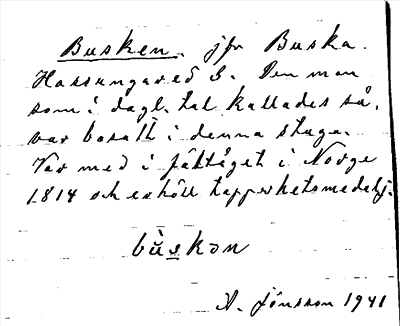 Busken. jfr Buska.
Hassungared S. Den man
som i dagl. tal kallades så,
var bosatt i denna stuga.
Var med i fälttåget i Norge
1814 och erhöll tapperhetsmedalj.
bùskən
A. Jönsson 1941